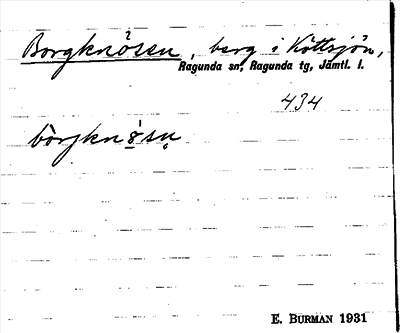 Borgknösen, berg i Köttsjön,
Ragunda sn, Ragunda tg, Jämtl. l.
434
E. BURMAN 1931